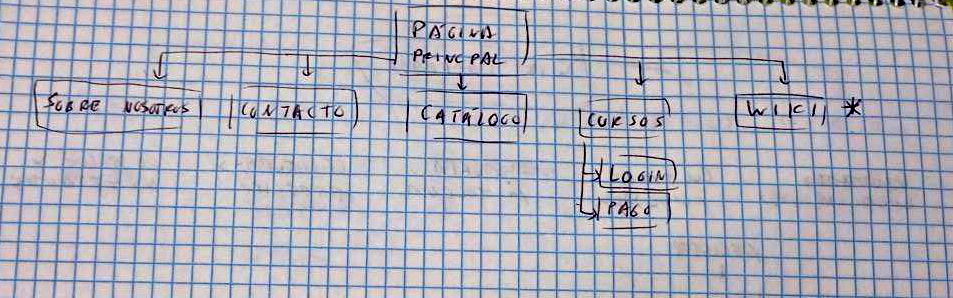 PÁGINA
PRINCIPAL
SOBRE NOSOTROS
CONTACTO
CATÁLOGO
CURSOS
WIKI *
LOGIN
PAGO